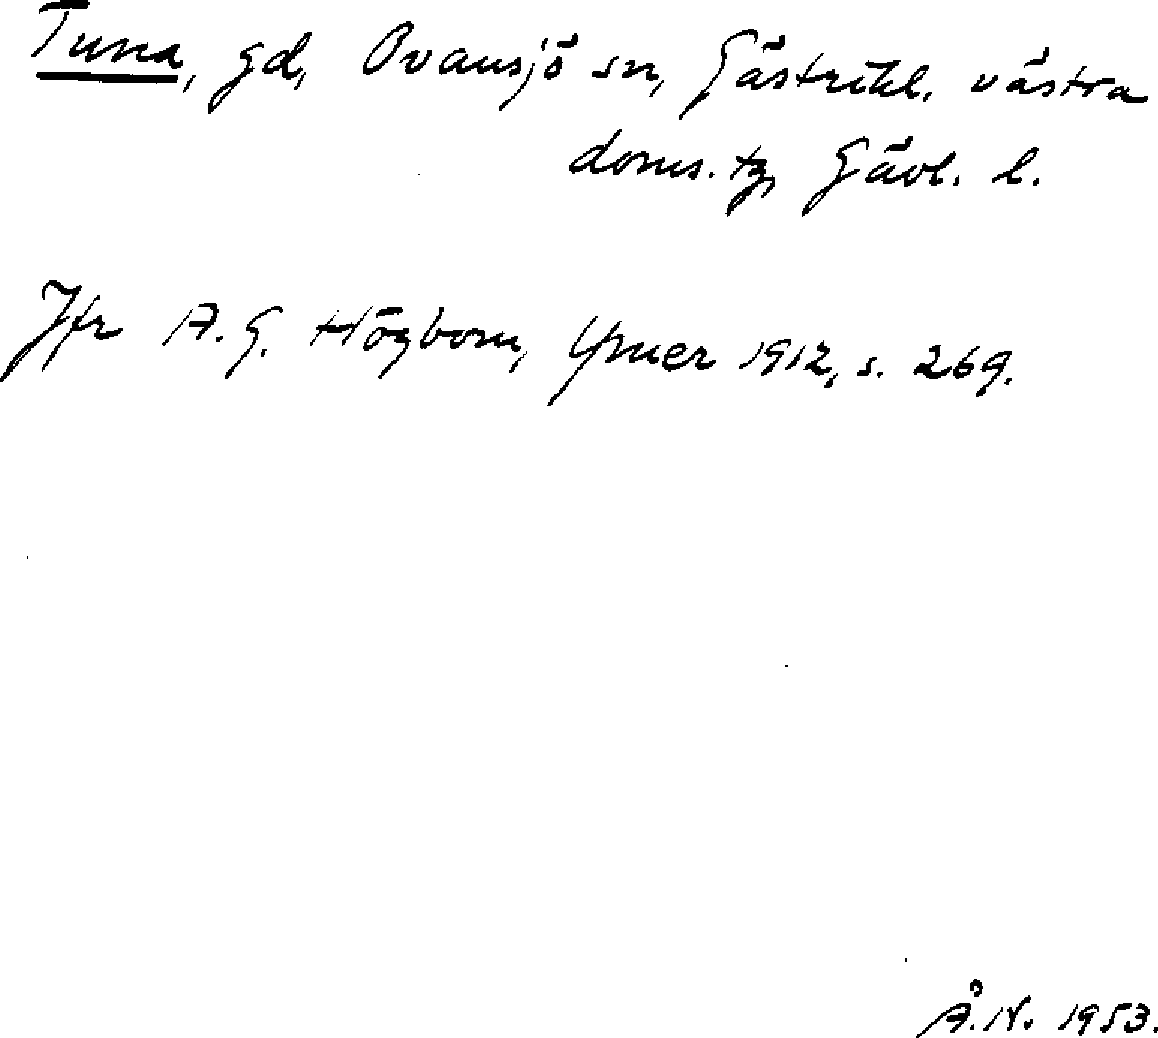 Tuna, gd, Ovansjö sn, Gästrikl. västra
doms. tg, Gävl. l.
Jfr A. G. Högbom, Ymer 1912, s. 269.
Å. N. 1953.